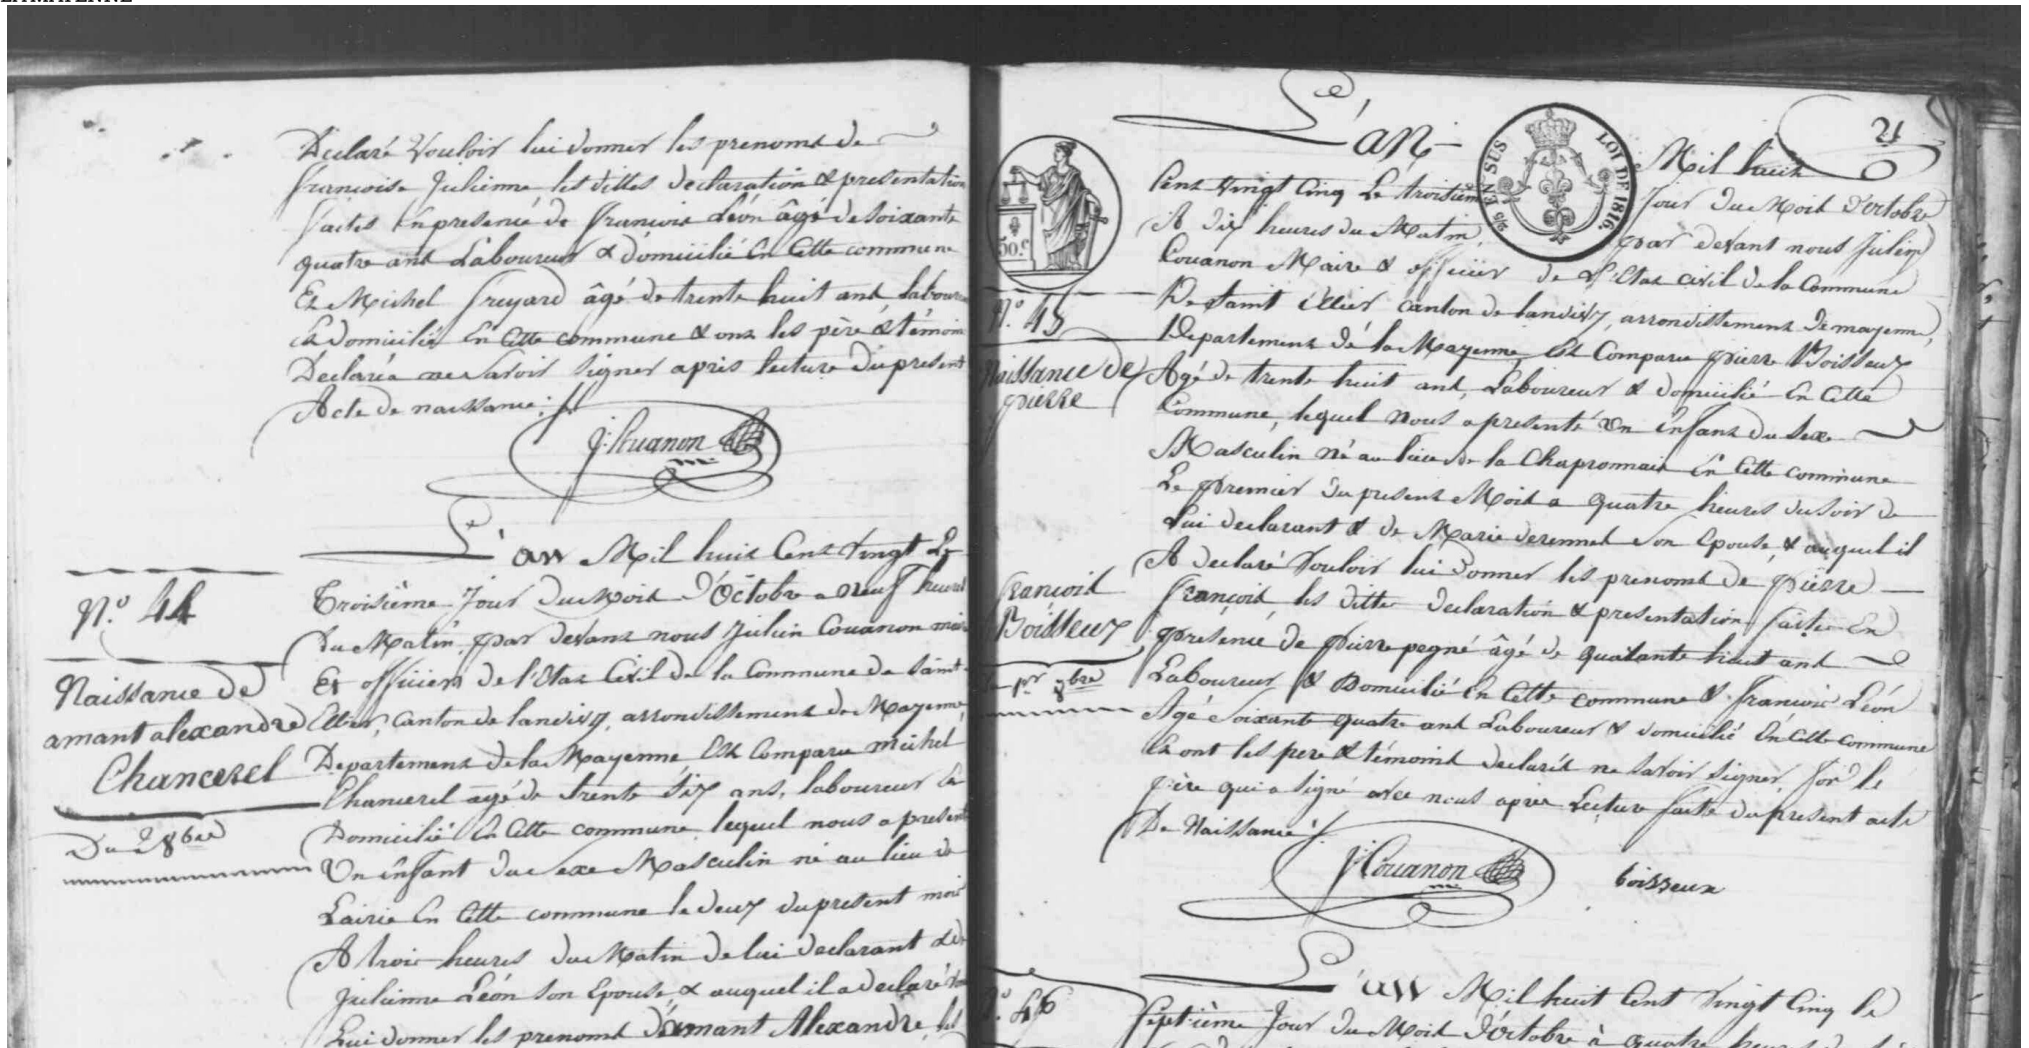 Declaré Vouloir lui donner les prenoms de
francoise Julienne les dittes declaration & presentation
faites En presence de francois Léon âgé de soixante
quatre ans Laboureur & domicilié En Cette commune
Et Michel freyard âgé de trente huit ans labour
et domicilié En Cette commune & ont les père & témoin
Declaré ne savoir signer après lecture du present
Acte de naissance
J. Couanon
N.o 44
Naissance de
amant alexandre
Chancerel
Du 2 8bre
L'an Mil huit Cent Vingt
Troisième Jour du Mois d'Octobre a neuf heures
Du Matin, par devant nous Julien Couanon
Et officier de l'Etat Civil de la Commune de Saint
Ellier, Canton de landivy, arrondissement de Mayenne
Departement de la Mayenne Est Comparu michel
Chancerel âgé de trente dix ans, laboureur &
Domicilié En Cette commune, lequel nous a present
Un infant du sexe Masculin né au lieu de
Lairie En Cette commune le deux du present mois
A trois heures du Matin de lui declarant & de
Julienne Léon son Epouse, & auquel il a declaré
Lui donner les prenoms d'amant Alexandre, les
21
L'an Mil huit
25 EN SUS LOI DE 1816.
50c
Cent Vingt Cinq Le troisième Jour du Mois d'octobre
A Dix heures du Matin, par devant nous Julien
Couanon Maire & officier de L'Etat civil de la Commune
De Saint Ellier canton de landivy, arrondissement de mayenne,
Departement de la Mayenne, Est Comparu pierre Boisseux
Agé de trente huit ans, Laboureur & domicilié En Cette
Commune, lequel nous a presenté un Enfant du Sexe
Masculin né au lieu de la Chapronnais En Cette commune
Le premier du present Mois a quatre heures du soir de
Lui declarant & de Marie derennes Son Epouse, & auquel il
A declaré Vouloir lui Donner les prenoms de pierre
francois les dittes declaration & presentation faites En
presence de pierre pegné âgé de quarante huit ans
Laboureur & Domicilié En Cette commune & francois Léon
Agé Soixante quatre ans Laboureur & domicilié En Cette commune
Et ont les pere & témoins declarés ne savoir signer, le
père qui a signé avec nous apres Lecture faite du present acte
De Naissance
J. Couanon
boisseux
N.o 45
Naissance de
pierre
francois
Boisseux
1er 8bre
N.o 46
L'an Mil huit Cent Vingt Cinq le
Septième Jour du Mois d'octobre à quatre heures